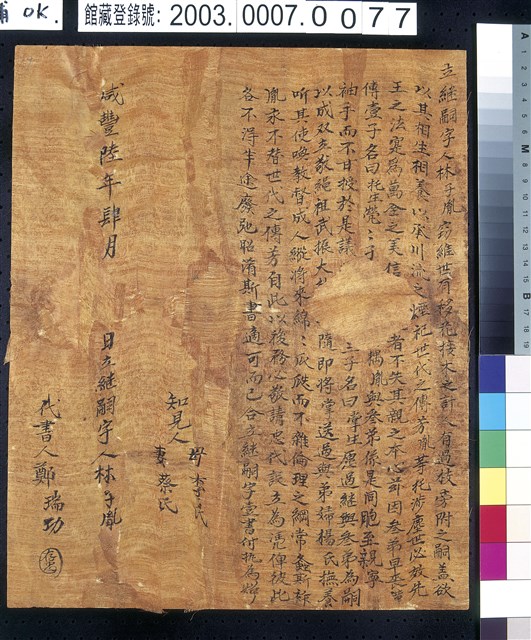 館藏登錄號: 2003.0007.0077
OK
立繼嗣字人林子胤窃維世有移花接木之計人有過枝蒙附之嗣蓋欲
以其相生相養以承川流之煙祀世代之傳芳胤等托涉塵世必放先
王之法寔為萬全之美信 者不失其親之本心玆因叁弟早
傳壹子名曰托生 偶胤與叁弟係是同胞至親寧
袖手而不甘授於是議 三子名曰掌生愿過繼與叁弟為嗣
以成双立敬繩祖武振大 隨即將掌送過與弟婦楊氏撫養
听其使喚教督成人縱將來綿綿瓜瓞而不雜倫理之綱常螽斯
胤永不替世代之傳芳自此以後務必敬請忠代設立為凴俾彼此
各不得半途廢弛昭茲斯書適可而已合立繼嗣字壹書付執為炤
知見人 母李氏
妻蔡氏
咸豐陸年肆月 日立繼嗣字人林子胤
代書人鄭瑞功